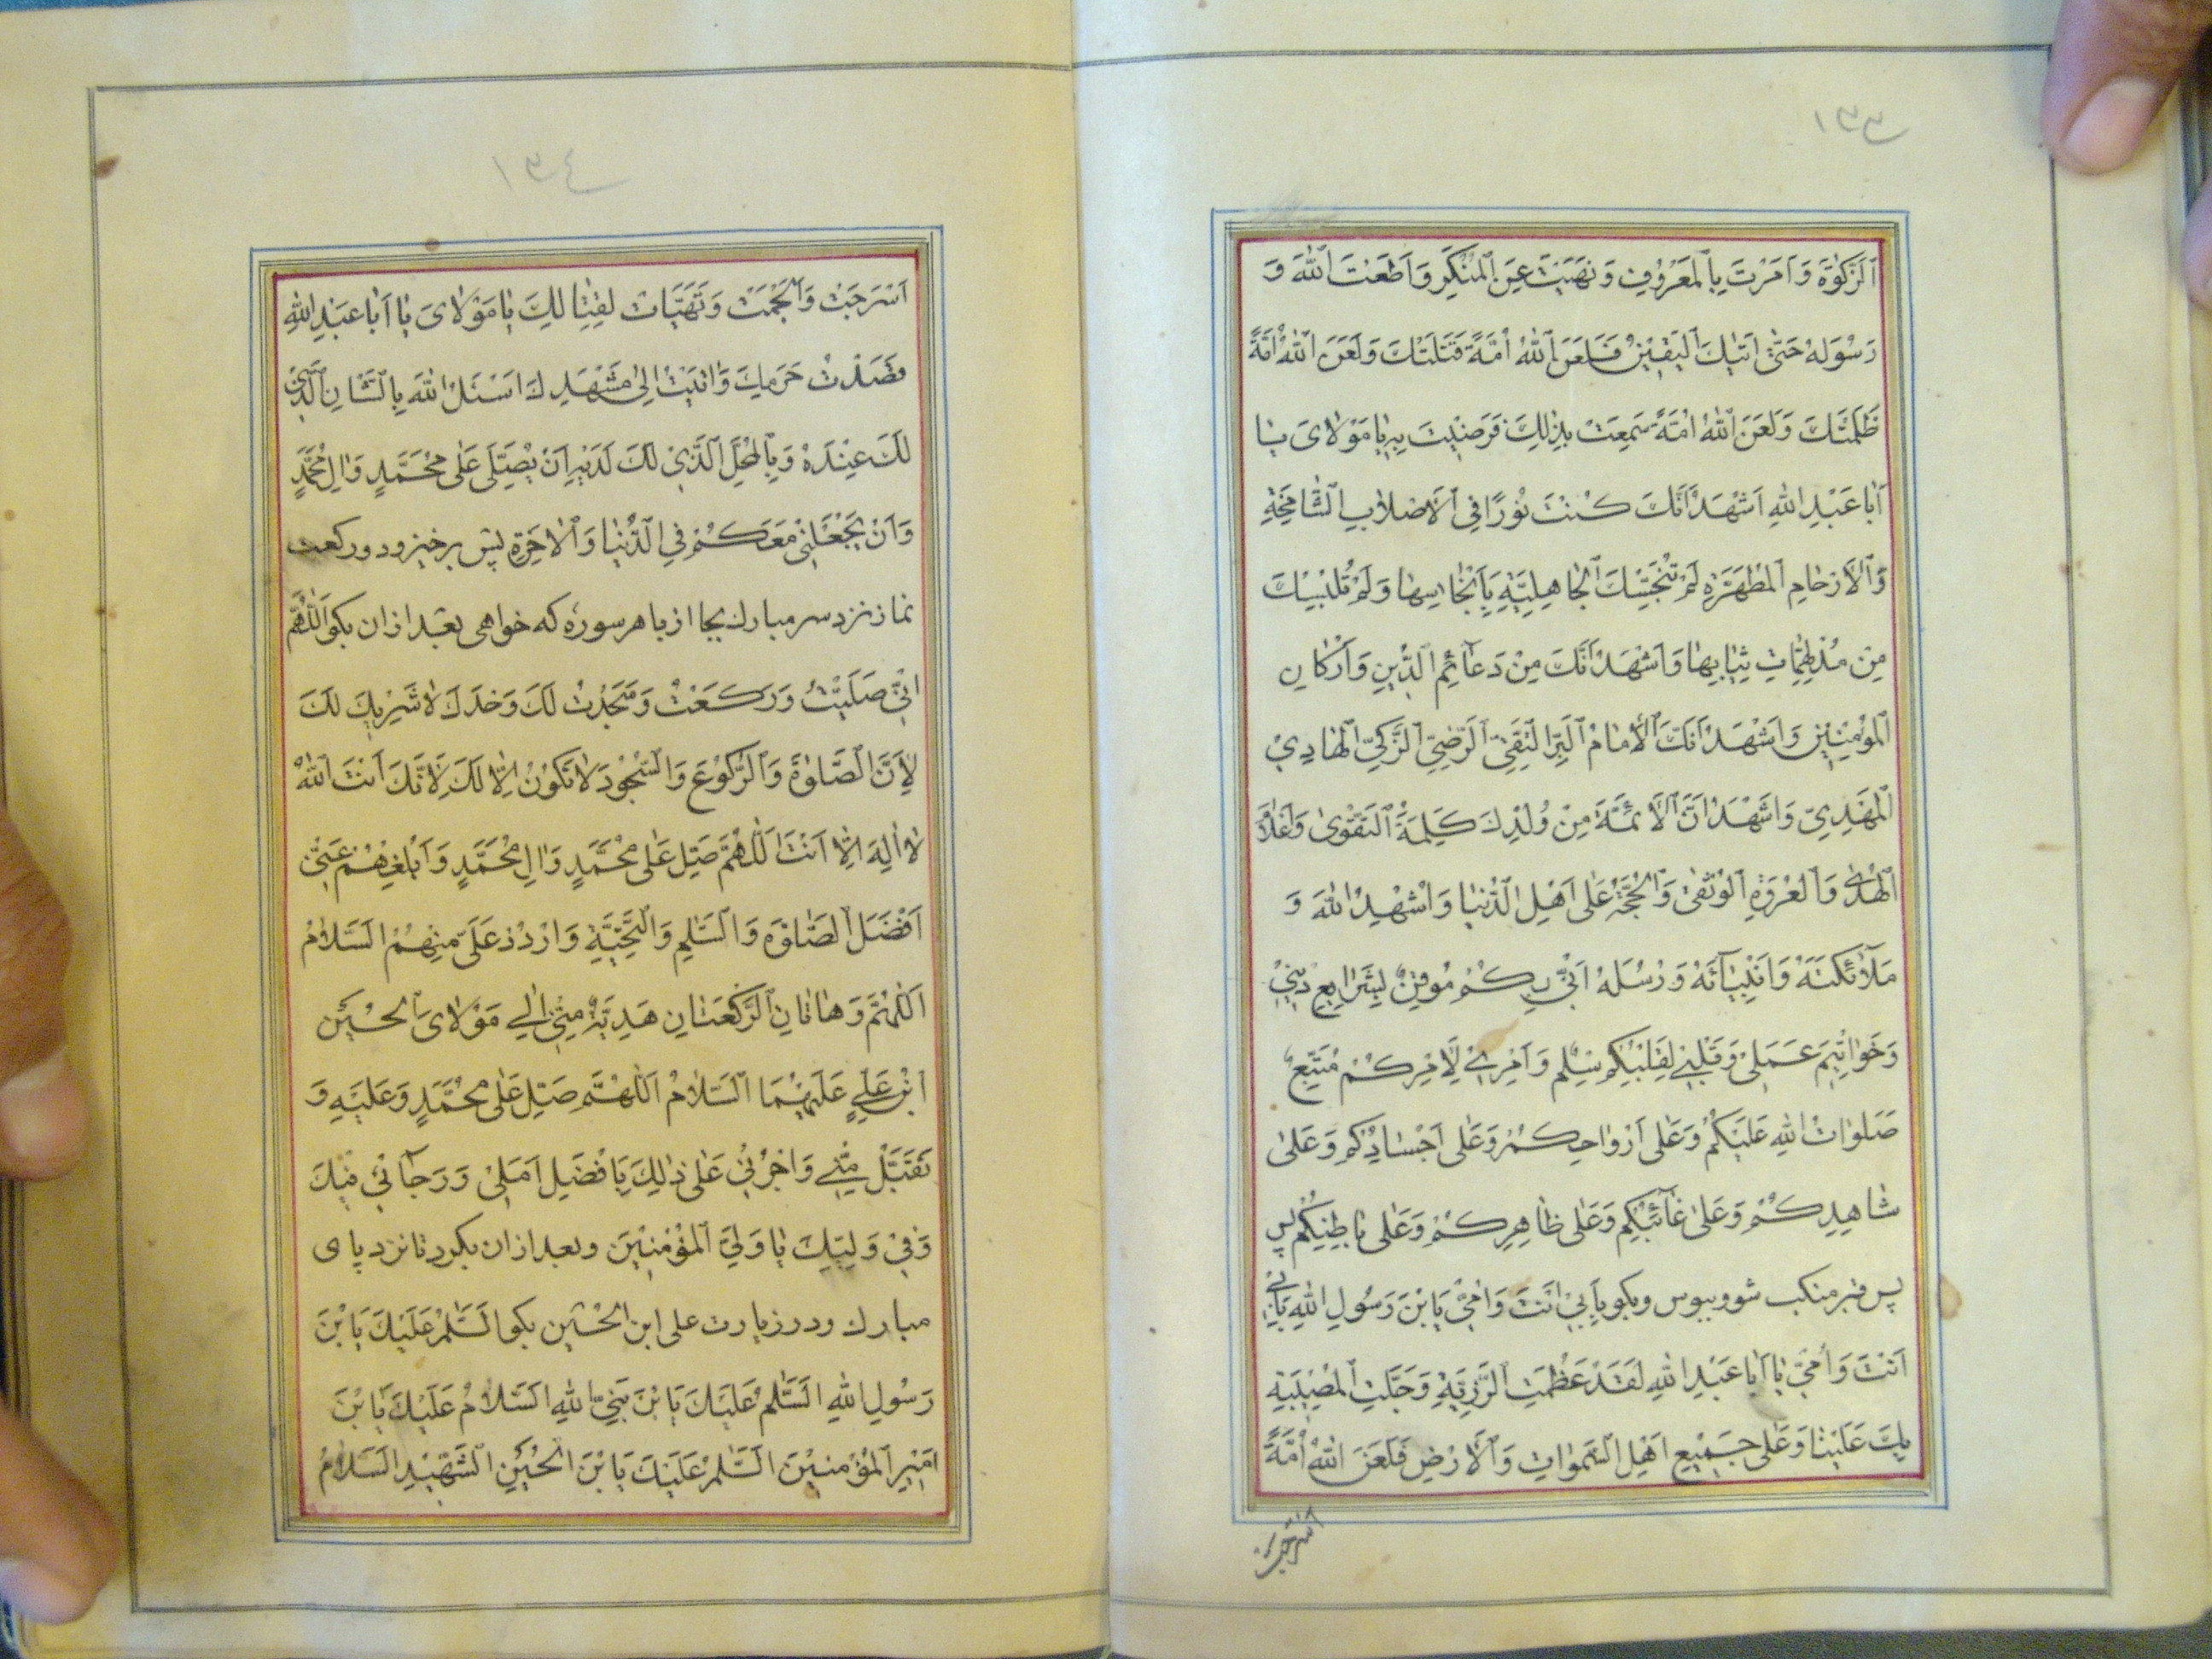 ١٣٣
اَلزَّكٰوةَ وَاَمَرْتَ بِالْمَعْرُوفِ وَنَهَيْتَ عَنِ الْمُنْكَرِ وَاَطَعْتَ اللّٰهَ وَ
رَسُوْلَهُ حَتّٰى اَتٰيكَ الْيَقِيْنُ فَلَعَنَ اللّٰهُ اُمَّةً قَتَلَتْكَ وَلَعَنَ اللّٰهُ اُمَّةً
ظَلَمَتْكَ وَلَعَنَ اللّٰهُ اُمَّةً سَمِعَتْ بِذٰلِكَ فَرَضِيَتْ بِهِ يٰا مَوْلٰاىَ يٰا
اَبٰا عَبْدِ اللّٰهِ اَشْهَدُ اَنَّكَ كُنْتَ نُوْرًا فِى الْاَصْلٰابِ الشّٰامِخَةِ
وَالْاَرْحٰامِ الْمُطَهَّرَةِ لَمْ تُنَجِّسْكَ الْجٰاهِلِيَّةِ بِاَنْجٰاسِهٰا وَلَمْ تُلْبِسْكَ
مِنْ مُدْلَهِمّٰاتِ ثِيٰابِهٰا وَاَشْهَدُ اَنَّكَ مِنْ دَعٰائِمِ الدِّينِ وَاَرْكٰانِ
الْمُؤْمِنِيْنَ وَاَشْهَدُ اَنَّكَ الْاِمٰامُ الْبَرُّ التَّقِىُّ الرَّضِىُّ الزَّكِىُّ الْهٰادِىْ
الْمَهْدِىُّ وَاَشْهَدُ اَنَّ الْاَئِمَّةَ مِنْ وُلْدِكَ كَلِمَةُ التَّقْوٰى وَاَعْلٰامُ
الْهُدٰى وَالْعُرْوَةِ الْوُثْقٰى وَالْحُجَّةُ عَلٰى اَهْلِ الدُّنْيٰا وَاُشْهِدُ اللّٰهَ وَ
مَلٰائِكَتَهُ وَاَنْبِيٰائَهُ وَرُسُلَهُ اَنِّى بِكُمْ مُوقِنٌ بِشَرٰايِعِ دِيْنِىْ
وَخَوٰاتِيْمِ عَمَلِىْ وَقَلْبِىْ لِقَلْبِكُمْ سِلْمٌ وَاَمْرِىْ لِاَمْرِكُمْ مُتَّبِعٌ
صَلَوٰاتُ اللّٰهِ عَلَيْكُمْ وَعَلٰى اَرْوٰاحِكُمْ وَعَلٰى اَجْسٰادِكُمْ وَعَلٰى
شٰاهِدِكُمْ وَعَلٰى غٰائِبِكُمْ وَعَلٰى ظٰاهِرِكُمْ وَعَلٰى بٰاطِنِكُمْ پس
پس قبر منكب شو وببوس وبكو بِاَبِىْ اَنْتَ وَاُمِّىْ يَابْنَ رَسُولِ اللّٰهِ بِاَبِىْ
اَنْتَ وَاُمِّىْ يٰا اَبٰا عَبْدِ اللّٰهِ لَقَدْ عَظُمَتِ الرَّزِيَّةِ وَجَلَّتِ الْمُصِيْبَةِ
بِكَ عَلَيْنٰا وَعَلٰى جَمِيْعِ اَهْلِ السَّمٰوٰاتِ وَالْاَرْضِ فَلَعَنَ اللّٰهُ اُمَّةً
اسرجت
١٣٤
اَسْرَجَتْ وَاَلْجَمَتْ وَتَهَيَّاَتْ لِقِتٰالِكَ يٰا مَوْلٰاىَ يٰا اَبٰا عَبْدِ اللّٰهِ
قَصَدْتُ حَرَمَكَ وَاَتَيْتُ اِلٰى مَشْهَدِكَ اَسْئَلُ اللّٰهَ بِالشَّاْنِ الَّذِىْ
لَكَ عِنْدَهُ وَبِالْمَحَلِّ الَّذِىْ لَكَ لَدَيْهِ اَنْ يُصَلِّىَ عَلٰى مُحَمَّدٍ وَاٰلِ مُحَمَّدٍ
وَاَنْ يَجْعَلَنِىْ مَعَكُمْ فِى الدُّنْيٰا وَالْاٰخِرَةِ پس برخيز ودو ركعت
نماز نزد سر مبارك بجا ار با هر سوره كه خواهى بعد ازان بكو اَللّٰهُمَّ
اِنِّى صَلَّيْتُ وَرَكَعْتُ وَسَجَدْتُ لَكَ وَحْدَكَ لٰا شَرِيْكَ لَكَ
لِاَنَّ الصَّلٰوةَ وَالرُّكُوْعَ وَالسُّجُوْدَ لٰا تَكُوْنُ اِلّٰا لَكَ لِاَنَّكَ اَنْتَ اللّٰهُ
لٰا اِلٰهَ اِلّٰا اَنْتَ اَللّٰهُمَّ صَلِّ عَلٰى مُحَمَّدٍ وَاٰلِ مُحَمَّدٍ وَاَبْلِغْهُمْ عَنِّىْ
اَفْضَلَ الصَّلٰوةِ وَالسَّلٰمِ وَالتَّحِيَّةِ وَارْدُدْ عَلَىَّ مِنْهُمُ السَّلٰامُ
اَللّٰهُمَّ وَهٰاتٰانِ الرَّكْعَتٰانِ هَدِيَّةٌ مِنِّىْ اِلٰى مَوْلٰاىَ الْحُسَيْنِ
ابْنِ عَلِىٍّ عَلَيْهِمَا السَّلٰامُ اَللّٰهُمَّ صَلِّ عَلٰى مُحَمَّدٍ وَعَلَيْهِ وَ
تَقَبَّلْ مِنِّىْ وَاْجُرْنِىْ عَلٰى ذٰلِكَ بِاَفْضَلِ اَمَلِىْ وَرَجٰائِىْ فِيْكَ
وَفِىْ وَلِيِّكَ يٰا وَلِىَّ الْمُؤْمِنِيْنَ وبعد ازان بكرد تا نزد پاى
مبارك ودر زيارت على ابن الحسين بكو اَلسَّلٰمُ عَلَيْكَ يَابْنَ
رَسُولِ اللّٰهِ اَلسَّلٰمُ عَلَيْكَ يَابْنَ نَبِىِّ اللّٰهِ اَلسَّلٰامُ عَلَيْكَ يَابْنَ
اَمِيْرِ الْمُؤْمِنِيْنَ اَلسَّلٰمُ عَلَيْكَ يَابْنَ الْحُسَيْنِ الشَّهِيْدِ اَلسَّلٰامُ